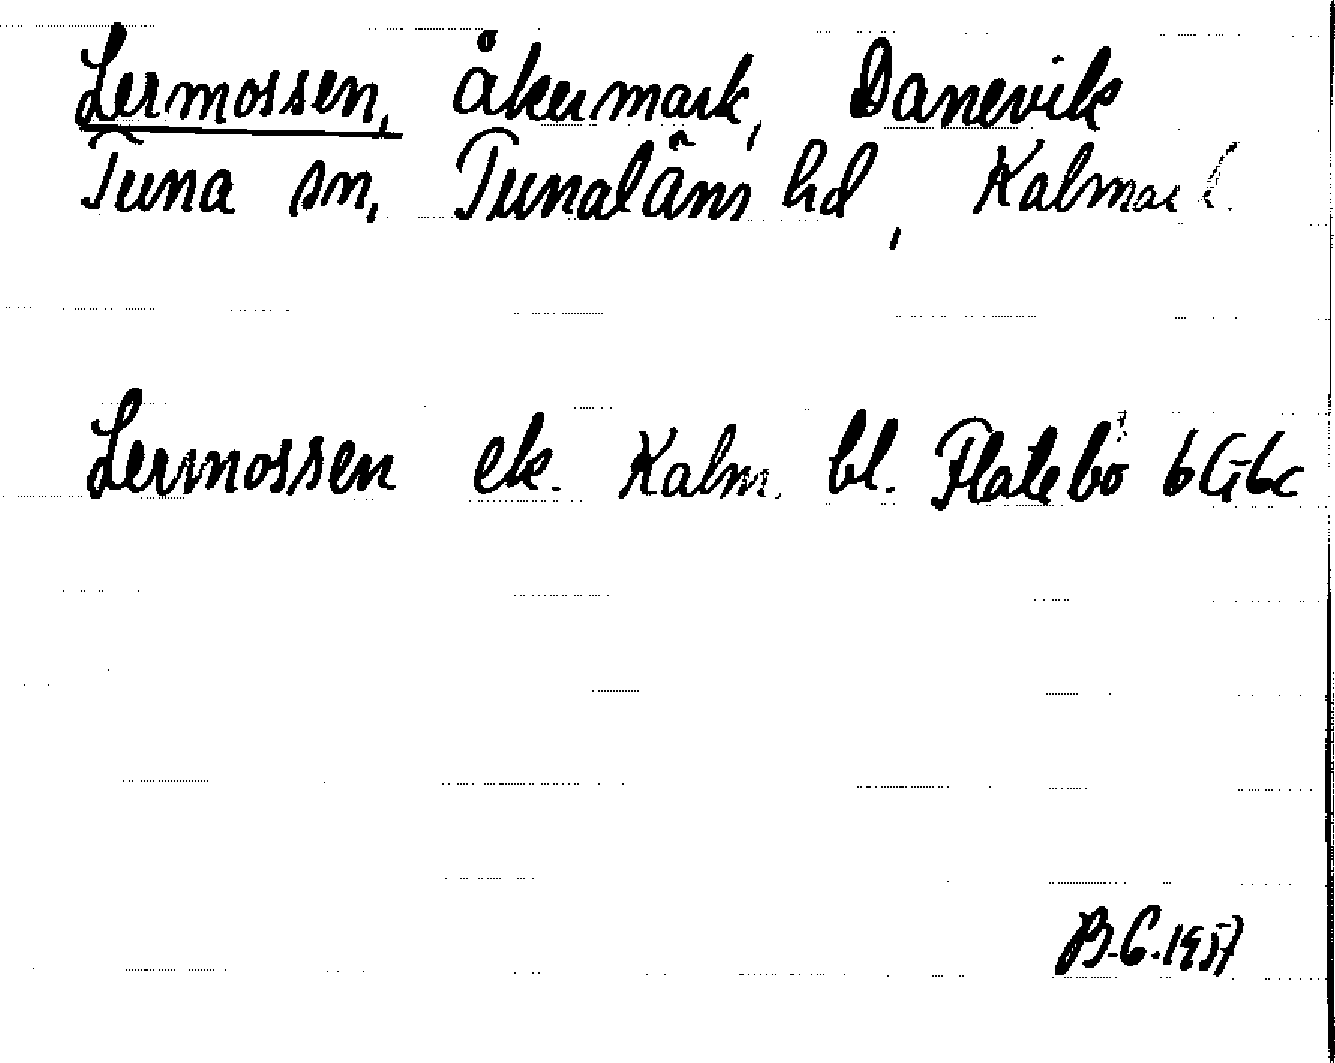 Lermossen, åkermark, Danevik
Tuna sn, Tunaläns hd, Kalmar l.
Lermossen ek. Kalm. bl. Flatebo 6G6c
B.G.1957